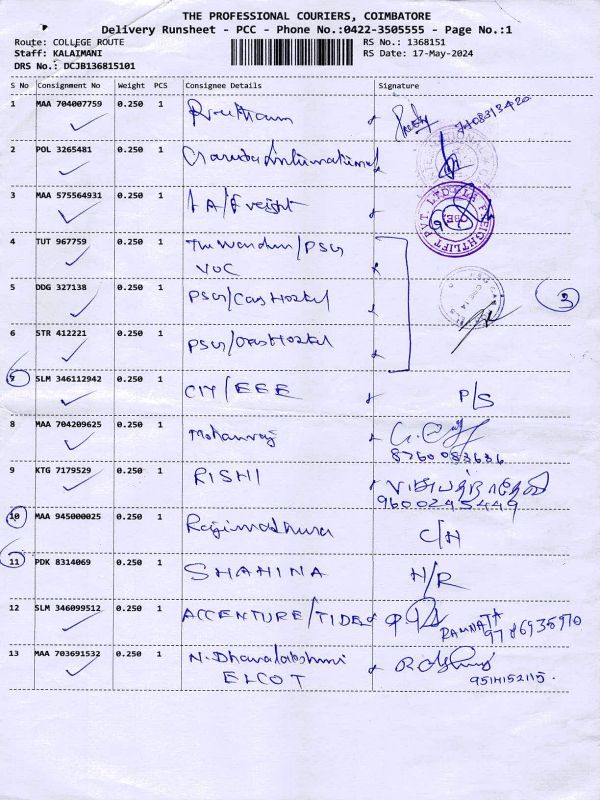 THE PROFESSIONAL COURIERS, COIMBATORE
Delivery Runsheet - PCC - Phone No.:0422-3505555 - Page No.:1
Route: COLLEGE ROUTE RS No.: 1368151
Staff: KALAIMANI RS Date: 17-May-2024
DRS No.: DCJB136815101
S No Consignment No Weight PCS Consignee Details Signature
1 MAA 704007759 0.250 1
2 POL 3265481 0.250 1 International
3 MAA 575564931 0.250 1 Freight
PVT. LTD
4 TUT 967759 0.250 1 The Warden/PSG
VOC
5 DDG 327138 0.250 1 PSG/Hostel 3
6 STR 412221 0.250 1 PSG/Hostel
7 SLM 346112942 0.250 1 CIT/EEE P/S
8 MAA 704209625 0.250 1 Mohanraj
8760083636
9 KTG 7179529 0.250 1 RISHI
9600245449
10 MAA 945000025 0.250 1 Rajimadhura C/H
11 PDK 8314069 0.250 1 SHAHINA H/R
12 SLM 346099512 0.250 1 ACCENTURE/TIDEL
RAMNATH
9786935970
13 MAA 703691532 0.250 1 N. Dhanalakshmi
ELCOT 9514152115